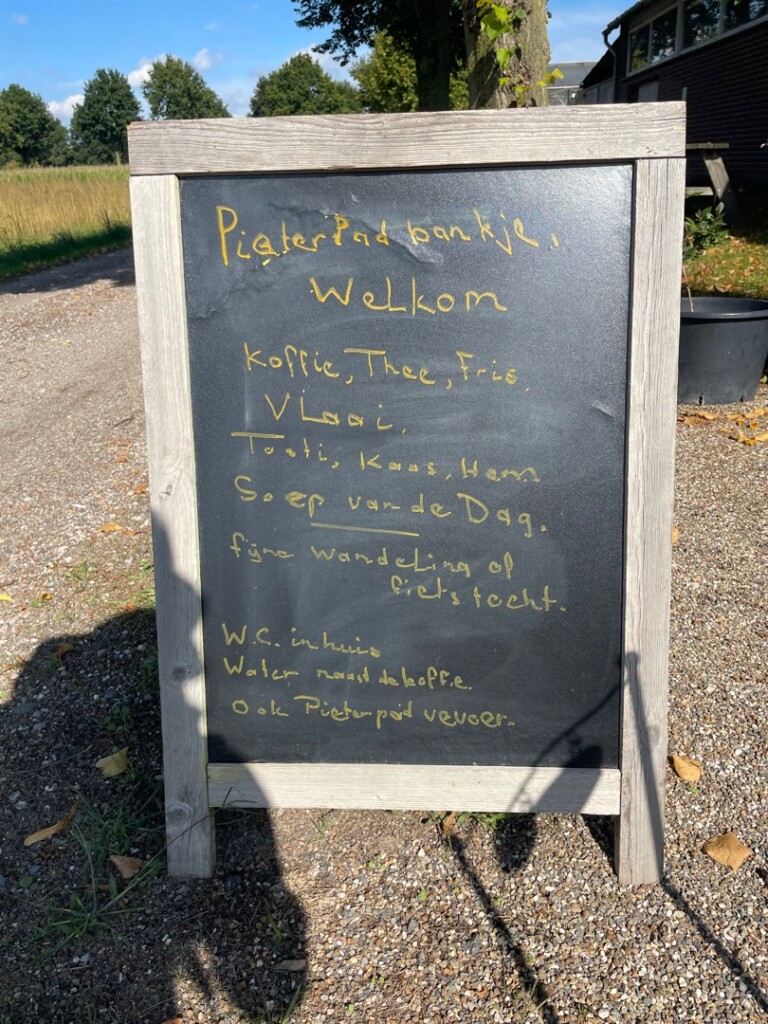 PieterPad bankje.
Welkom
Koffie, Thee, Fris.
Vlaai.
Tosti, Kaas, Ham
Soep van de Dag.
fijne wandeling of
fietstocht.
W.C. in huis
Water naast de koffie.
Ook Pieterpad vevoer.